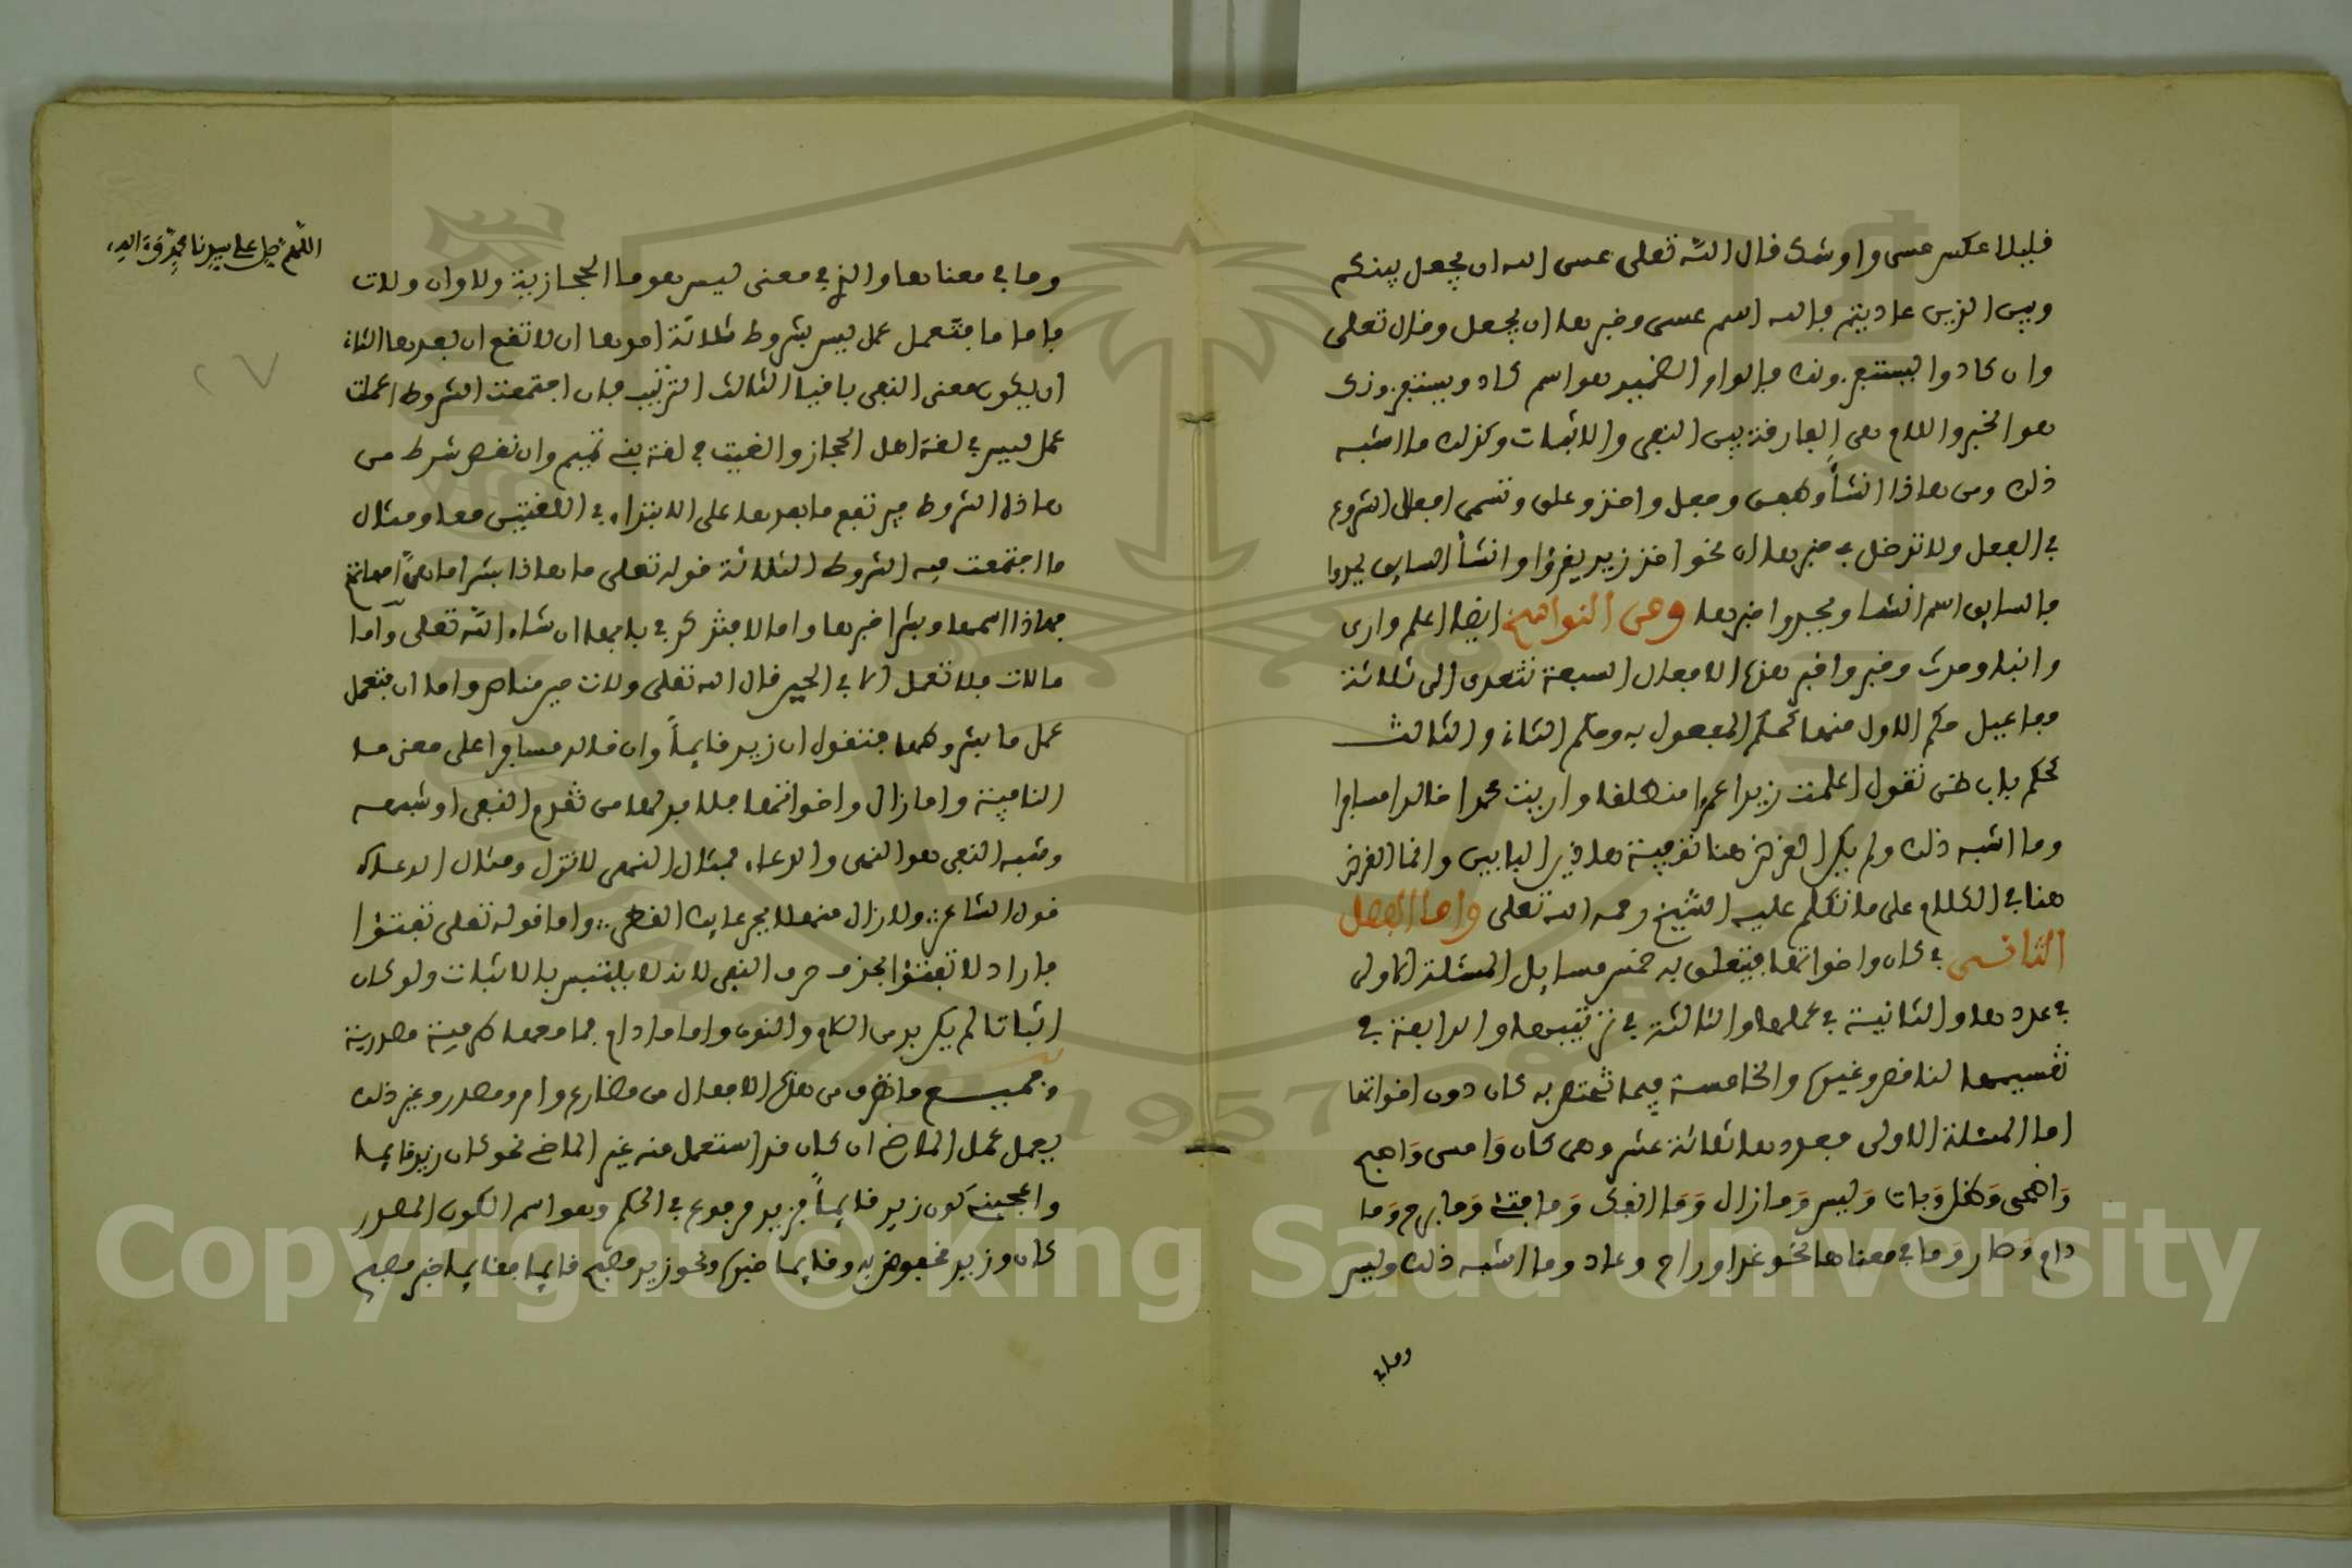 قليلا عكس عسى واوشك قال الله تعلى عسى الله ان يجعل بينكم
وبين الذين عاديتم فالله اسم عسى وخبرها ان يجعل وقال تعلى
وان كادوا ليستفزونك فالواو الضمير هو اسم كاد ويستفزونك
هو الخبر واللام هى الفارقة بين النفى والاثبات وكذلك ما اشبه
ذلك ومن هاذا انشأ وطفق وجعل واخذ وعلق وتسمى افعال الشروع
في الفعل ولا تدخل في خبرها ان نحو اخذ زيد يقرؤا وانشأ السايق يحدوا
فالسايق اسم انشا ويحدوا خبرها ومن النواسخ ايضا اعلم وارى
وانبا وحدث وخبر واخبر هذه الافعال السبعة تتعدى الى ثلاثة
مفاعيل حكم الاول منها كحكم المفعول به وحكم الثاني والثالث
كحكم باب ظن تقول اعلمت زيدا عمرا منطلقا واريت محمدا خالدا مسافرا
وما اشبه ذلك ولم يكن الغرض هنا تقريبة هاذين البابين وانما الغرض
هنا في الكلام على ما تكلم عليه الشيخ رحمه الله تعلى واما الفصل
الثاني في كان واخواتها فيتعلق به خمس مسايل المسئلة الاولى
في عددها والثانية في عملها والثالثة في ترتيبها والرابعة في
تقسيمها لناقص وغيره والخامسة فيما تختص به كان دون اخواتها
اما المسئلة الاولى فعددها ثلاثة عشر وهى كان وَامسى وَاصبح
وَاضحى وَظل وَبات وَليس وَما زال وَمَا انفك وَما فتئ وَما برح وَما
دام وَصار وَما في معناها نحو غدا وراح وعاد وما اشبه ذلك وليس
وما في
اللهم صل على سيدنا محمد وَءاله
وما في معناها والذي في معنى ليس هو ما الحجازية ولا وان ولات
فاما ما فتعمل عمل ليس بشروط ثلاثة احدها ان لا تقع ان بعدها الثاني
ان يكون معنى النفى باقيا الثالث الترتيب فان اجتمعت الشروط اعملت
عمل ليس في لغة اهل الحجاز والغيت في لغة بني تميم وان نقص شرط من
هاذه الشروط فيرتفع ما بعدها على الابتداء في اللغتين معا ومثال
ما اجتمعت فيه الشروط الثلاثة قوله تعلى ما هاذا بشرا ما هنّ امهاتهم
فهاذا اسمها وبشرا خبرها واما لا فتذكر في بابها ان شاء الله تعلى واما
ما لات فلا تعمل الا في الحين قال الله تعلى ولات حين مناص واما ان فتعمل
عمل ما بشروطها فتقول ان زيد قايماً وان خالد مسافرا على معنى ما
النافية واما زال واخواتها فلا بد لها من تقدم النفى او شبهه
وشبه النفى هو النهى والدعاء فمثال النهى لا تزل ومثال الدعاء
قول الشاعر ولا زال منهلا بجرعايك القطر واما قوله تعلى تفتؤا
فاراد لا تفتؤا فحذف حرف النفى لانه لا يلتبس بالاثبات ولو كان
اثباتا لم يكن بد من اللام والنون واما ما دام فما معها ظرفية مصدرية
وجميع ما تصرف من هذه الافعال من مضارع وامر ومصدر وغير ذلك
يعمل عمل الماضي ان كان قد استعمل منه غير الماضي نحو كان زيد قايما
واعجبني كون زيد قايماً فزيد مرفوع في الحكم وهو اسم الكون المصدر
كان وزيد مخفوض به وقايما خبره ونحو زيد مصبح قايما فقايما خبر مصبح